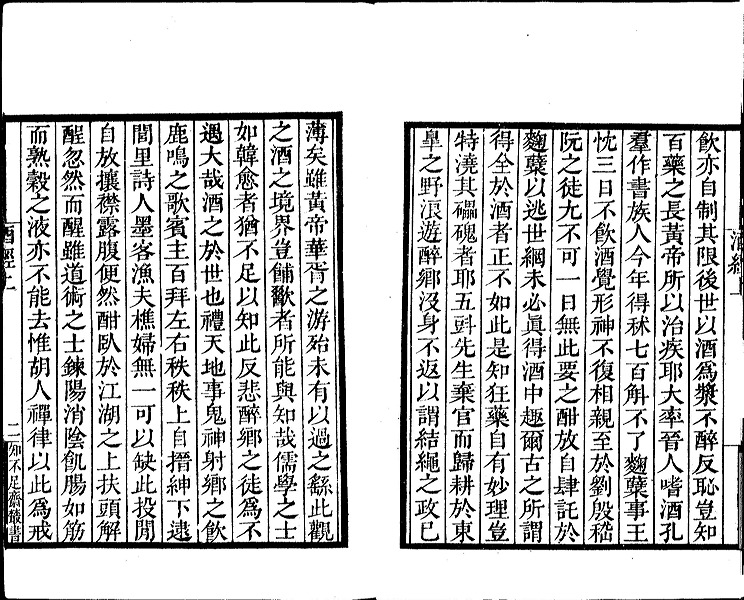 飲亦自制其限後世以酒爲漿不醉反恥豈知
百藥之長黃帝所以治疾耶大率晉人嗜酒孔
羣作書族人今年得秫七百斛不了麴糵事王
忱三日不飲酒覺形神不復相親至於劉殷嵇
阮之徒尤不可一日無此要之酣放自肆託於
麴糵以逃世網未必眞得酒中趣爾古之所謂
得全於酒者正不如此是知狂藥自有妙理豈
特澆其礧磈者耶五斗先生棄官而歸耕於東
皐之野浪遊醉鄉沒身不返以謂結繩之政已
薄矣雖黃帝華胥之游殆未有以過之繇此觀
之酒之境界豈餔歠者所能與知哉儒學之士
如韓愈者猶不足以知此反悲醉鄉之徒爲不
遇大哉酒之於世也禮天地事鬼神射鄉之飲
鹿鳴之歌賓主百拜左右秩秩上自搢紳下逮
閭里詩人墨客漁夫樵婦無一可以缺此投閒
自放攘襟露腹便然酣臥於江湖之上扶頭解
酲忽然而醒雖道術之士鍊陽消陰飢腸如筋
而熟穀之液亦不能去惟胡人禪律以此爲戒
酒經上
二
知不足齋叢書